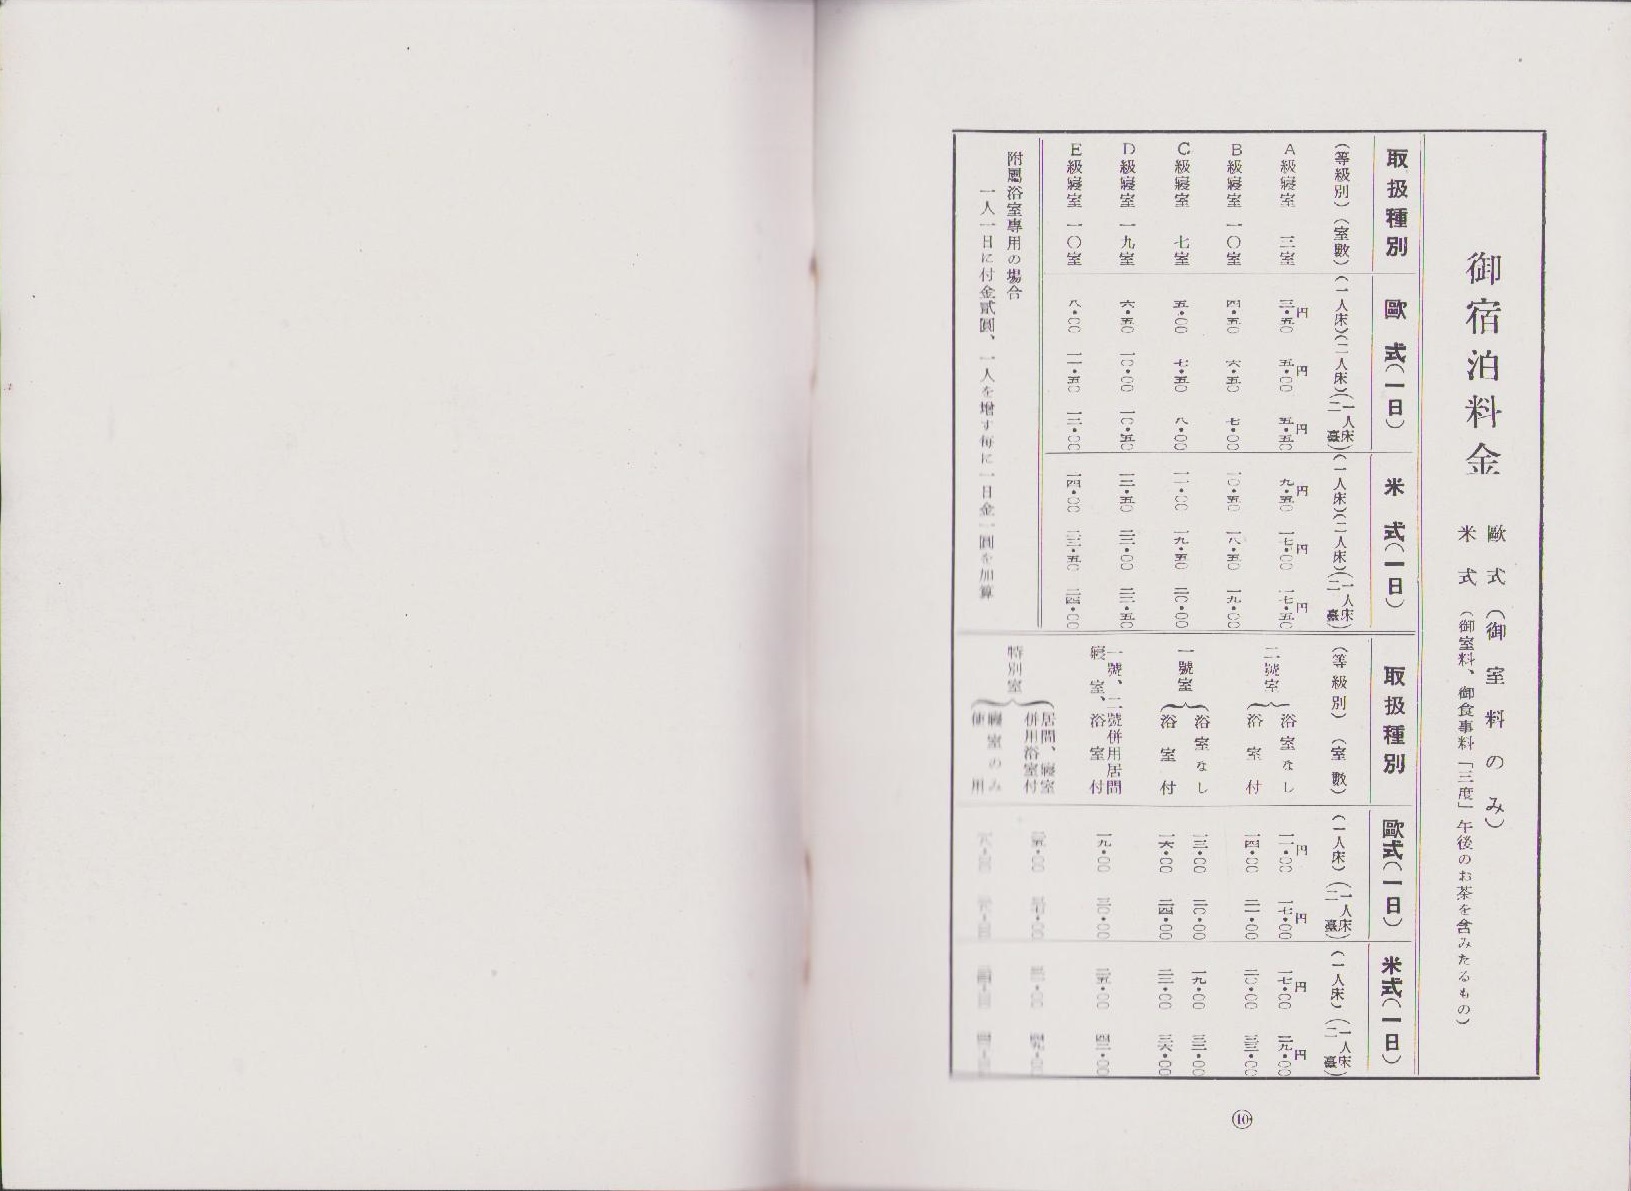 御宿泊料金
歐式（御室料のみ）
米式（御室料、御食事料「三度」午後のお茶を含みたるもの）
取扱種別 歐式（一日） 米式（一日）
（等級別）（室數）（一人床）（二人床）（一人床二臺）（一人床）（二人床）（一人床二臺）
A級寢室 三室 三・五〇円 五・〇〇円 五・五〇円 九・五〇円 一七・〇〇円 一七・五〇円
B級寢室 一〇室 四・五〇 六・五〇 七・〇〇 一〇・五〇 一八・五〇 一九・〇〇
C級寢室 七室 五・〇〇 七・五〇 八・〇〇 一一・〇〇 一九・五〇 二〇・〇〇
D級寢室 一九室 六・五〇 一〇・〇〇 一〇・五〇 一二・五〇 二二・〇〇 二二・五〇
E級寢室 一〇室 八・〇〇 一一・五〇 一二・〇〇 一四・〇〇 二三・五〇 二四・〇〇
附屬浴室專用の場合
一人一日に付金貳圓、一人を増す毎に一日金一圓を加算
取扱種別 歐式（一日） 米式（一日）
（等級別）（室數）（一人床）（一人床二臺）（一人床）（一人床二臺）
二號室 浴室なし 一一・〇〇円 一七・〇〇円 一七・〇〇円 二九・〇〇円
浴室付 一四・〇〇 二一・〇〇 二〇・〇〇 三三・〇〇
一號室 浴室なし 一三・〇〇 二〇・〇〇 一九・〇〇 三二・〇〇
浴室付 一六・〇〇 二四・〇〇 二二・〇〇 三六・〇〇
一號、二號併用居間
寢室、浴室付 一九・〇〇 三〇・〇〇 二五・〇〇 四二・〇〇
特別室 居間、寢室
併用浴室付
寢室のみ
使用
10